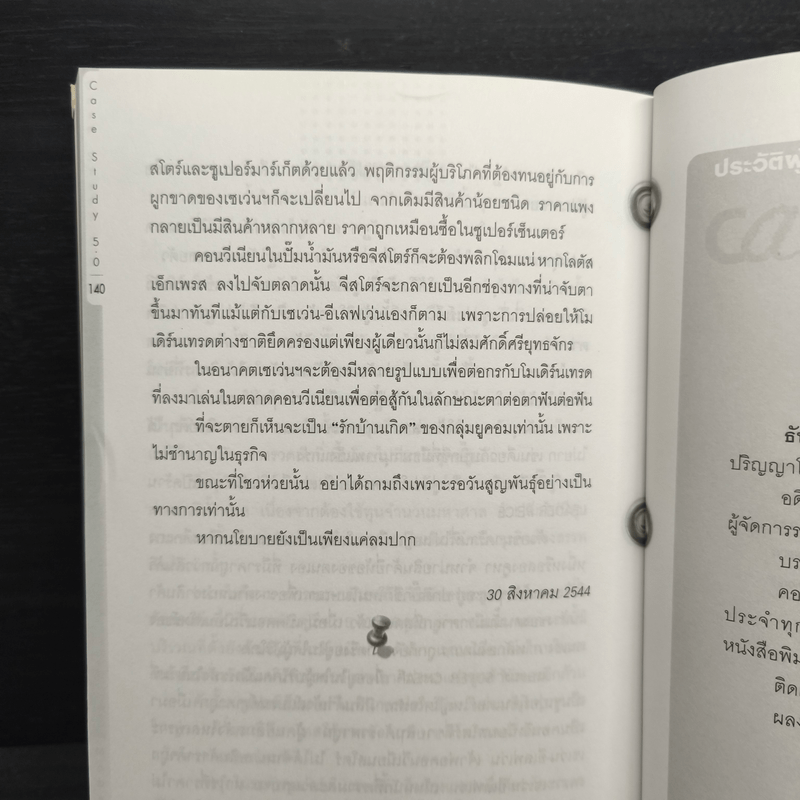 Case Study 5.0
140
สโตร์และซูเปอร์มาร์เก็ตด้วยแล้ว พฤติกรรมผู้บริโภคที่ต้องทนอยู่กับการ
ผูกขาดของเซเว่นฯก็จะเปลี่ยนไป จากเดิมมีสินค้าน้อยชนิด ราคาแพง
กลายเป็นมีสินค้าหลากหลาย ราคาถูกเหมือนซื้อในซูเปอร์เซ็นเตอร์
คอนวีเนียนในปั๊มน้ำมันหรือจีสโตร์ก็จะต้องพลิกโฉมแน่ หากโลตัส
เอ็กเพรส ลงไปจับตลาดนั้น จีสโตร์จะกลายเป็นอีกช่องทางที่น่าจับตา
ขึ้นมาทันทีแม้แต่กับเซเว่น-อีเลฟเว่นเองก็ตาม เพราะการปล่อยให้โม
เดิร์นเทรดต่างชาติยึดครองแต่เพียงผู้เดียวนั้นก็ไม่สมศักดิ์ศรียุทธจักร
ในอนาคตเซเว่นฯจะต้องมีหลายรูปแบบเพื่อต่อกรกับโมเดิร์นเทรด
ที่ลงมาเล่นในตลาดคอนวีเนียนเพื่อต่อสู้กันในลักษณะตาต่อตาฟันต่อฟัน
ที่จะตายก็เห็นจะเป็น “รักบ้านเกิด” ของกลุ่มยูคอมเท่านั้น เพราะ
ไม่ชำนาญในธุรกิจ
ขณะที่โชวห่วยนั้น อย่าได้ถามถึงเพราะรอวันสูญพันธุ์อย่างเป็น
ทางการเท่านั้น
หากนโยบายยังเป็นเพียงแค่ลมปาก
30 สิงหาคม 2544
ประวัติผู้
ปริญญาโ
ผู้จัดการร
บร
คอ
ประจำทุก
หนังสือพิม
ติด
ผลง